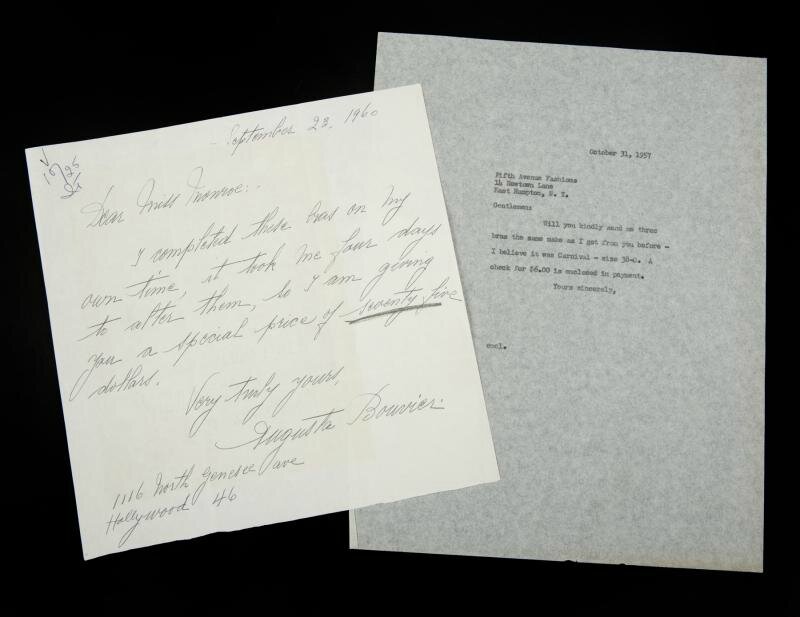 September 23, 1960
Dear Miss Monroe:.
I completed these bras on my
own time, it took me four days
to alter them, so I am giving
you a special price of seventy five
dollars.
Very truly yours,
Augusta Bouvier.
1116 North Genesee ave
Hollywood 46
October 31, 1957
Fifth Avenue Fashions
14 Newtown Lane
East Hampton, N. Y.
Gentlemen:
Will you kindly send me three
bras the same make as I got from you before -
I believe it was Carnival - size 38-C. A
check for $6.00 is enclosed in payment.
Yours sincerely,
encl.